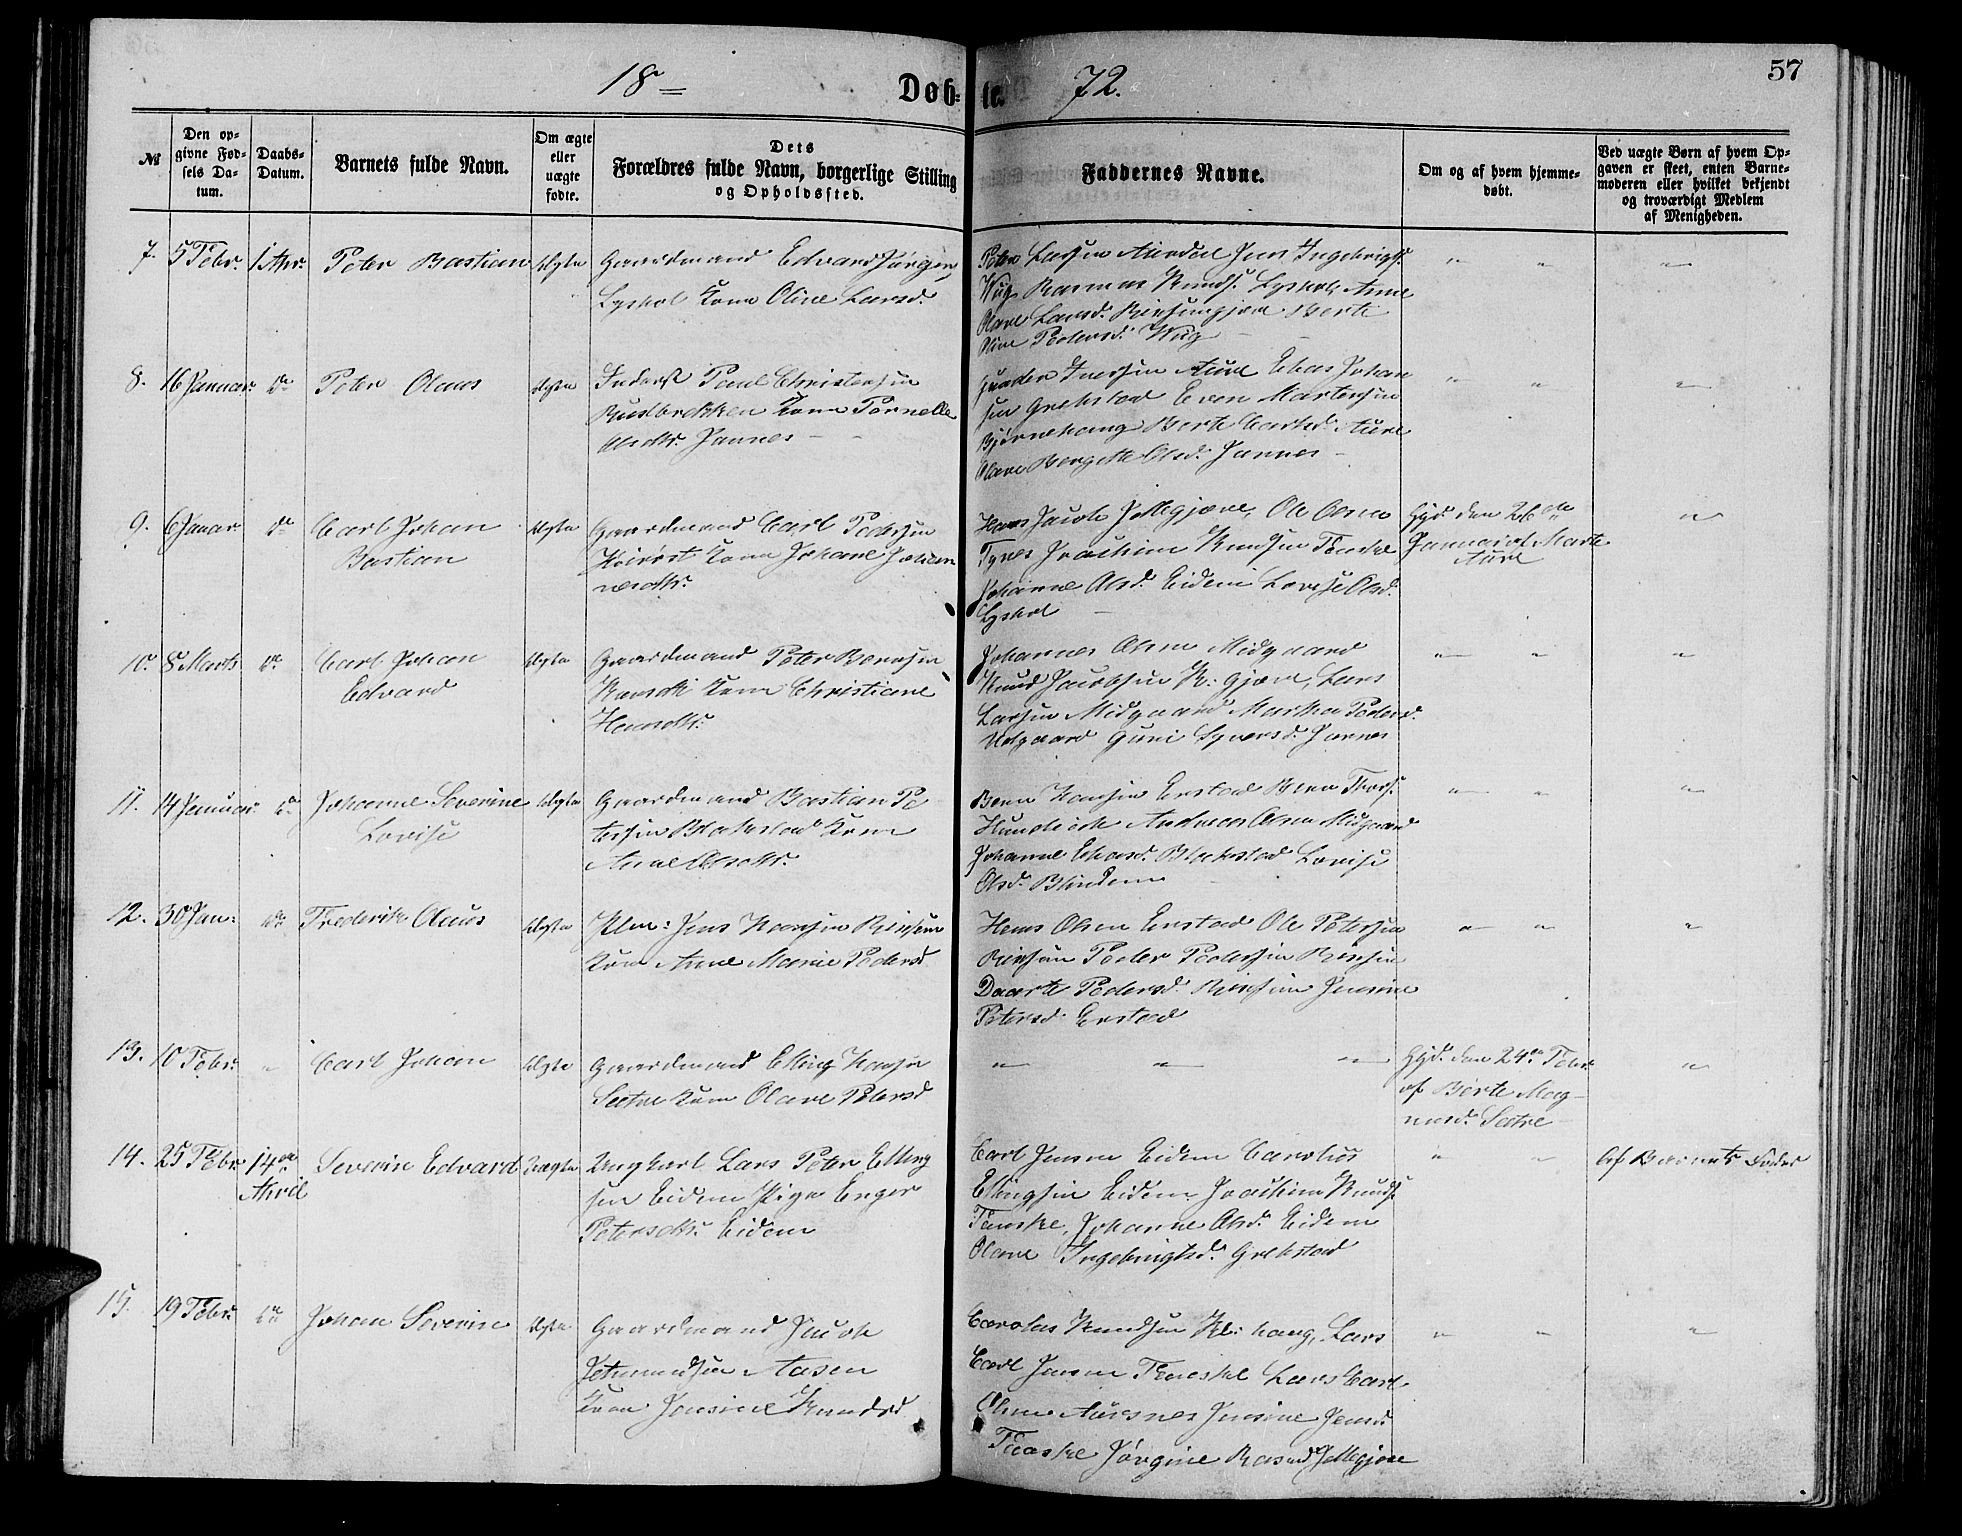 57
18 72.
Døbte.
№
Den opgivne Fødsels Datum.
Daabs-Datum.
Barnets fulde Navn.
Om ægte eller uægte fødte.
Dets Forældres fulde Navn, borgerlige Stilling og Opholdssted.
Faddernes Navne.
Om og af hvem hjemmedøbt.
Ved uægte Børn af hvem Opgaven er skeet, enten Barnemoderen eller hvilket bekjendt og troværdigt Medlem af Menigheden.
7. 5 Febr. 1 Apr. Peter Bastian Ægte
Gaardmand Edvard Jørgens
Lyshol Kone Oline Larsd.
Peter Larsen Aurdal Jens Ingebrigts.
Wug Rasmus Knuds. Lyshol, Anne
Olave Larsd. Berte
Oline Pedersd. Wug
8. 16 Januar do Peter Olaus Ægte
Inderst Paul Christensen
Kone Pernelle
Olsdtr. Jarnes
Iversen Aure Elias Johan
sen Grebstad Even Martensen
Bjørnehaug Berte Carlsd. Aure
Olave Bergitte Olsd. Jarnes
9. 6 Januar do Carl Johan Ægte
Bastian
Gaardmand Carl Pedersen
Kone Johane Johan
nesdtr.
Hans Jacob Jellegjære, Ole Olsen
Tynes Joachim Knudsen Tenske
Johanne Olsd. Eidem Lovise Olsd.
Lyshol
Hjd. den 26de
Januar af Marte
Aure
10. 8 Marts do Carl Johan Ægte
Edvard
Gaardmand Peter Bernsen
Kone Christiane
Hansdtr.
Johannes Olsen Midgaard
Knud Jacobsen R. gjære, Lars
Larsen Midgaard Martha Pedersd.
Uregaard Guri Syversd. Jarnes
11. 14 Januar do Johanne Severine Ægte
Lovise
Gaardmand Bastian Pe
tersen Blakstad Kone
Anne Olsdtr.
Bern Hansen Erstad Bern Thors.
Hundeide Andreas Olsen Midgaard
Johanne Eliasd. Blakstad Lovise
Olsd. Blindem
12. 30 Jan. do Frederik Olaus Ægte
Jens Hansen
Kone Anne Marie Pedersd
Hans Olsen Erstad Ole Petersen
Peder Pedersen
Daarte Pedersd. Jensine
Petersd. Erstad
13. 10 Febr. Carl Johan Ægte
Gaardmand Elling Hansen
Sætre Kone Olave Petersd
Hjd. den 24de Febr.
af Berte Mag-
nusd. Sætre
14. 25 Febr. 14de Severin Edvard Uægte
April
Ungkarl Lars Peter Elling
sen Eidem Pige Enger
Petersdtr. Eidem
Carl Jensen Eidem Carolus
Ellingsen Eidem Joachim Knuds.
Tenske, Johanne Olsd. Eidem
Olave Ingebrigtsd. Grebstad
Af Barnets Fader
15. 19 Febr. do Johan Severin Ægte
Gaardmand Jacob
Jetmundsen Aasen
Kone Jensine Knudsd
Carolus Knudsen Kl. haug, Lars
Carl Jensen Tenske Lars Carl
Olsen Auresnes Jensine Jensd
Tenske Jørgine Rasmd Jellegjære